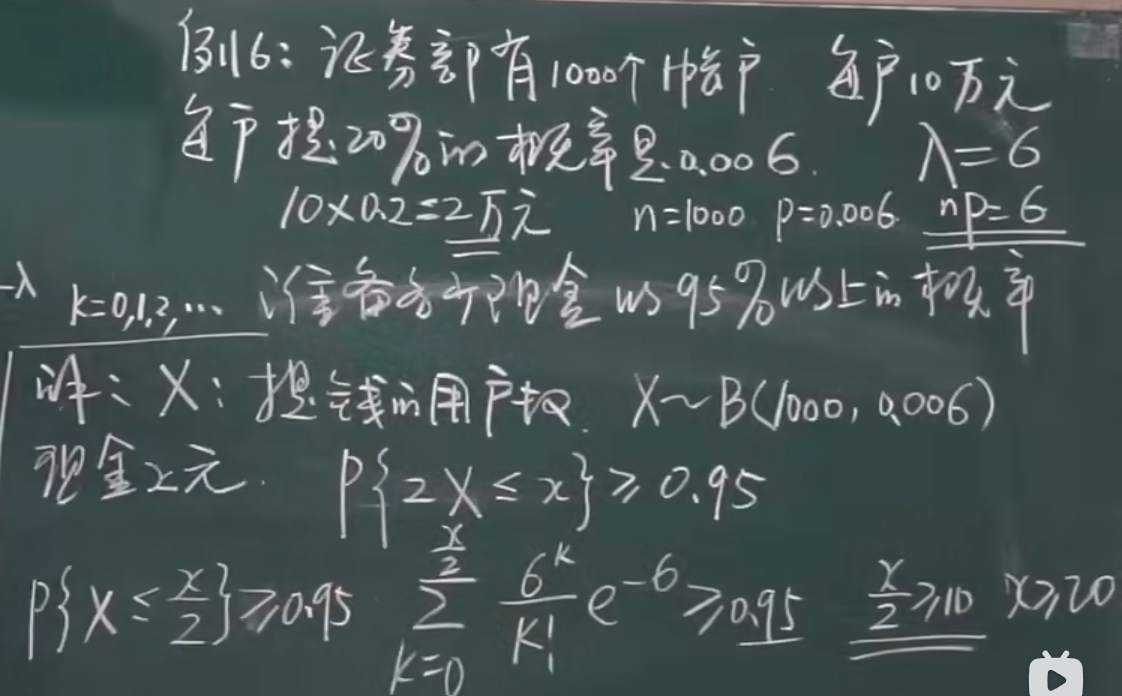 例16: 证券部有1000个帐户 每户10万元
每户提20%的概率是0.006. λ=6
10×0.2=2万元 n=1000 p=0.006 np=6
-λ k=0,1,2,… 准备多少现金 以95%以上的概率
解: X: 提钱的用户数. X~B(1000, 0.006)
现金x元. P{2X≤x}≥0.95
P{X≤x/2}≥0.95 ∑_{k=0}^{x/2} 6^k/k! e^{-6}≥0.95 x/2≥10 x≥20